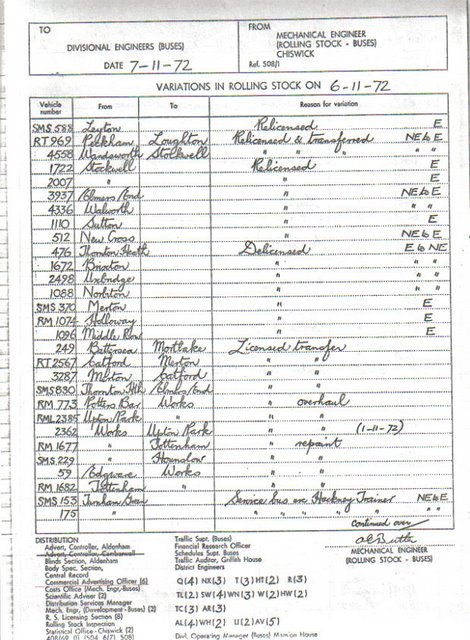 TO
DIVISIONAL ENGINEERS (BUSES)
DATE 7-11-72
FROM
MECHANICAL ENGINEER
(ROLLING STOCK - BUSES)
CHISWICK
Ref. 508/1
VARIATIONS IN ROLLING STOCK ON 6-11-72
Vehicle number From To Reason for variation
SMS 588 Leyton Relicensed E
RT 969 Peckham Loughton Relicensed & transferred NE to E
4558 Wandsworth Stockwell " " " "
1722 Stockwell Relicensed E
2007 " " E
3937 Elmers End " NE to E
4336 Walworth " " "
1110 Sutton " E
512 New Cross " NE to E
476 Thornton Heath Delicensed E to NE
1672 Brixton " " "
2498 Uxbridge " " "
1088 Norbiton " " "
SMS 370 Merton " E
RM 1074 Holloway " E
1096 Middle Row " E
249 Battersea Mortlake Licensed transfer
RT 2567 Catford Merton " "
3287 Merton Catford " "
SMS 830 Thornton Hth Elmers End " "
RM 773 Potters Bar Works " overhaul
RML 2385 Upton Park " " "
2362 Works Upton Park " " (1-11-72)
RM 1677 " Tottenham " repaint
SMS 229 " Hounslow " "
59 Edgware Works " "
RM 1682 Tottenham " " "
SMS 153 Turnham Green Service bus ex Hackney Trainer NE to E
175 " " " " " " " "
Continued over
MECHANICAL ENGINEER
(ROLLING STOCK - BUSES)
DISTRIBUTION
Advert, Controller, Aldenham
Advert, Controller, Camberwell
Blinds Section, Aldenham
Body Spec, Section,
Central Record
Commercial Advertising Officer (6)
Costs Office (Mech. Engr.-Buses)
Scientific Adviser (2)
Distribution Services Manager
Mech. Engr, (Development - Buses) (2)
R. S. Licensing Section (8)
Rolling Stock Inspection
Statistical Office - Chiswick (2)
Traffic Supt. (Buses)
Financial Research Officer
Schedules Supt. Buses
Traffic Auditor, Griffith House
District Engineers
Q(4) NX(3) T(3) HT(2) R(3)
TL(2) SW(4) WN(3) W(2) HW(2)
TC(3) AR(3)
AL(4) WH(2) U(2) AV(5)
Divl. Operating Manager (Buses) Mansion House